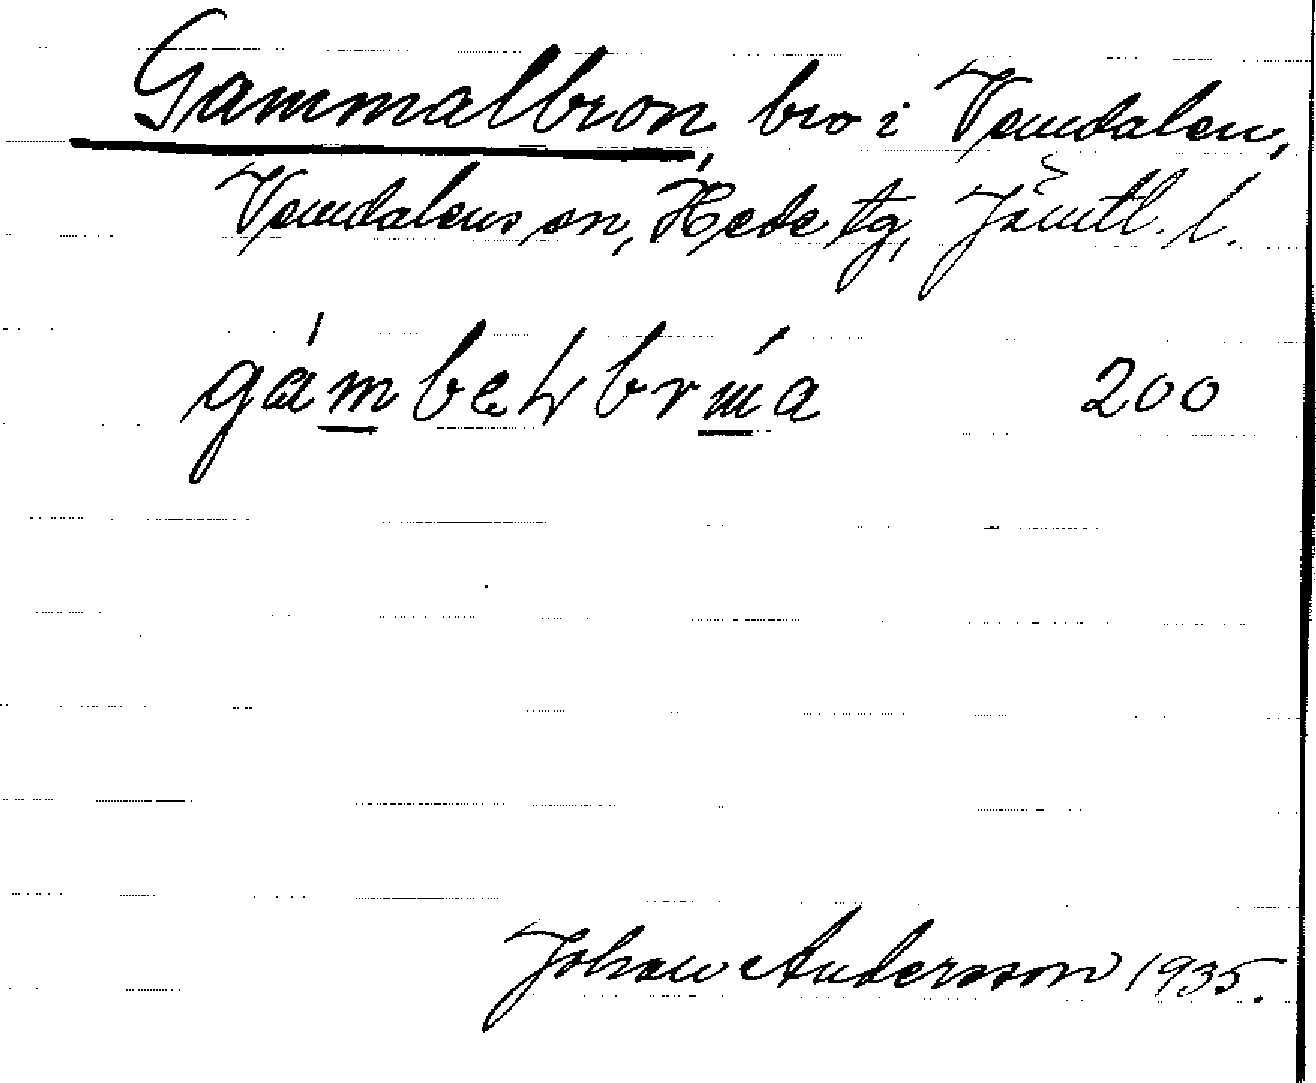 Gammalbron, bro i Vemdalen,
Vemdalens sn, Hede tg, Jämtl. l.
200
Johan Andersson 1935.